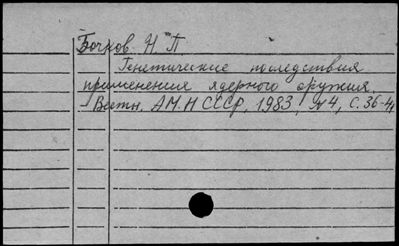 Бочков Н. П.
Генетические последствия
применения ядерного оружия.
Вестн. АМН СССР, 1983, N4, С. 36-4